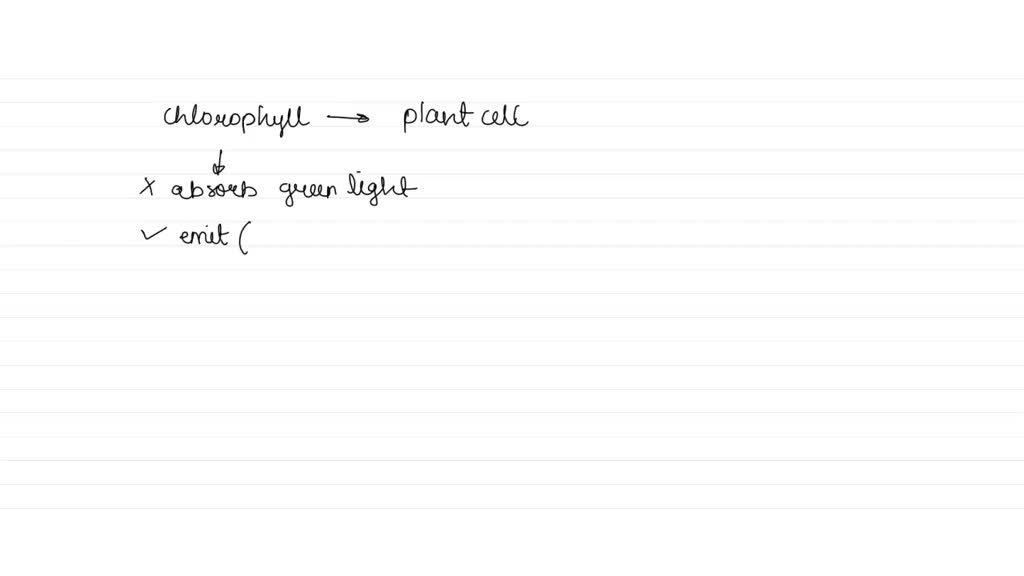 chlorophyll → plant cell
↓
× absorb green light
✓ emit (